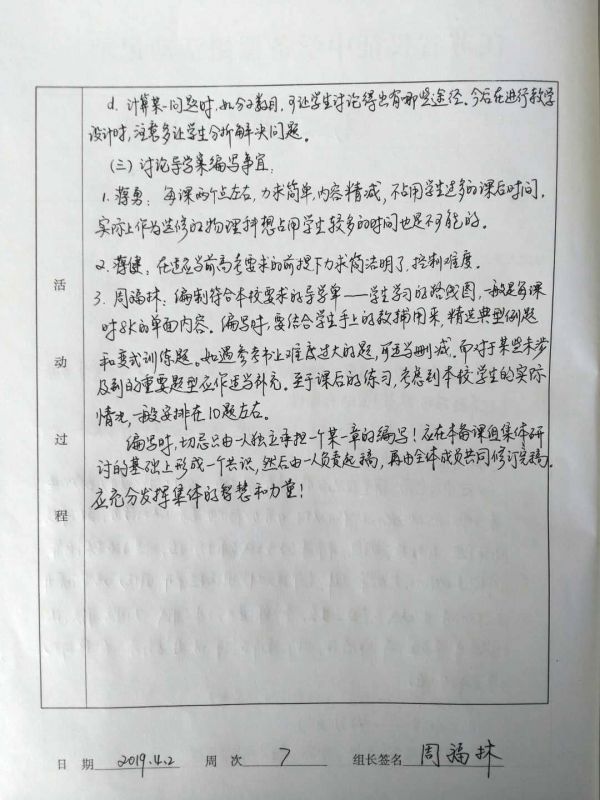 d. 计算某一问题时,如分子数目,可让学生讨论得出有哪些途径。今后在进行教学
设计时,注意多让学生分析解决问题。
(三)讨论导学案编写事宜:
1. 蒋勇:每课两个点左右,力求简单,内容精减,不占用学生过多的课后时间,
实际上作为选修的物理科想占用学生较多的时间也是不可能的。
2. 蒋健:在适应当前高考要求的前提下力求简洁明了,控制难度。
3. 周福林:编制符合本校要求的导学单——学生学习的路线图,一般是每课
时8K的单面内容。编写时,要结合学生手上的教辅用来,精选典型例题
和变式训练题。如遇参考书上难度过大的题,可适当删减,而对于某些未涉
及到的重要题型应作适当补充。至于课后的练习,考虑到本校学生的实际
情况,一般安排在10题左右。
编写时,切忌只由一人独立承担一个某一章的编写!应在本备课组集体研
讨的基础上形成一个共识,然后由一人负责起稿,再由全体成员共同修订完稿。
应充分发挥集体的智慧和力量!
活
动
过
程
日 期 2019.4.2 周 次 7 组长签名 周福林